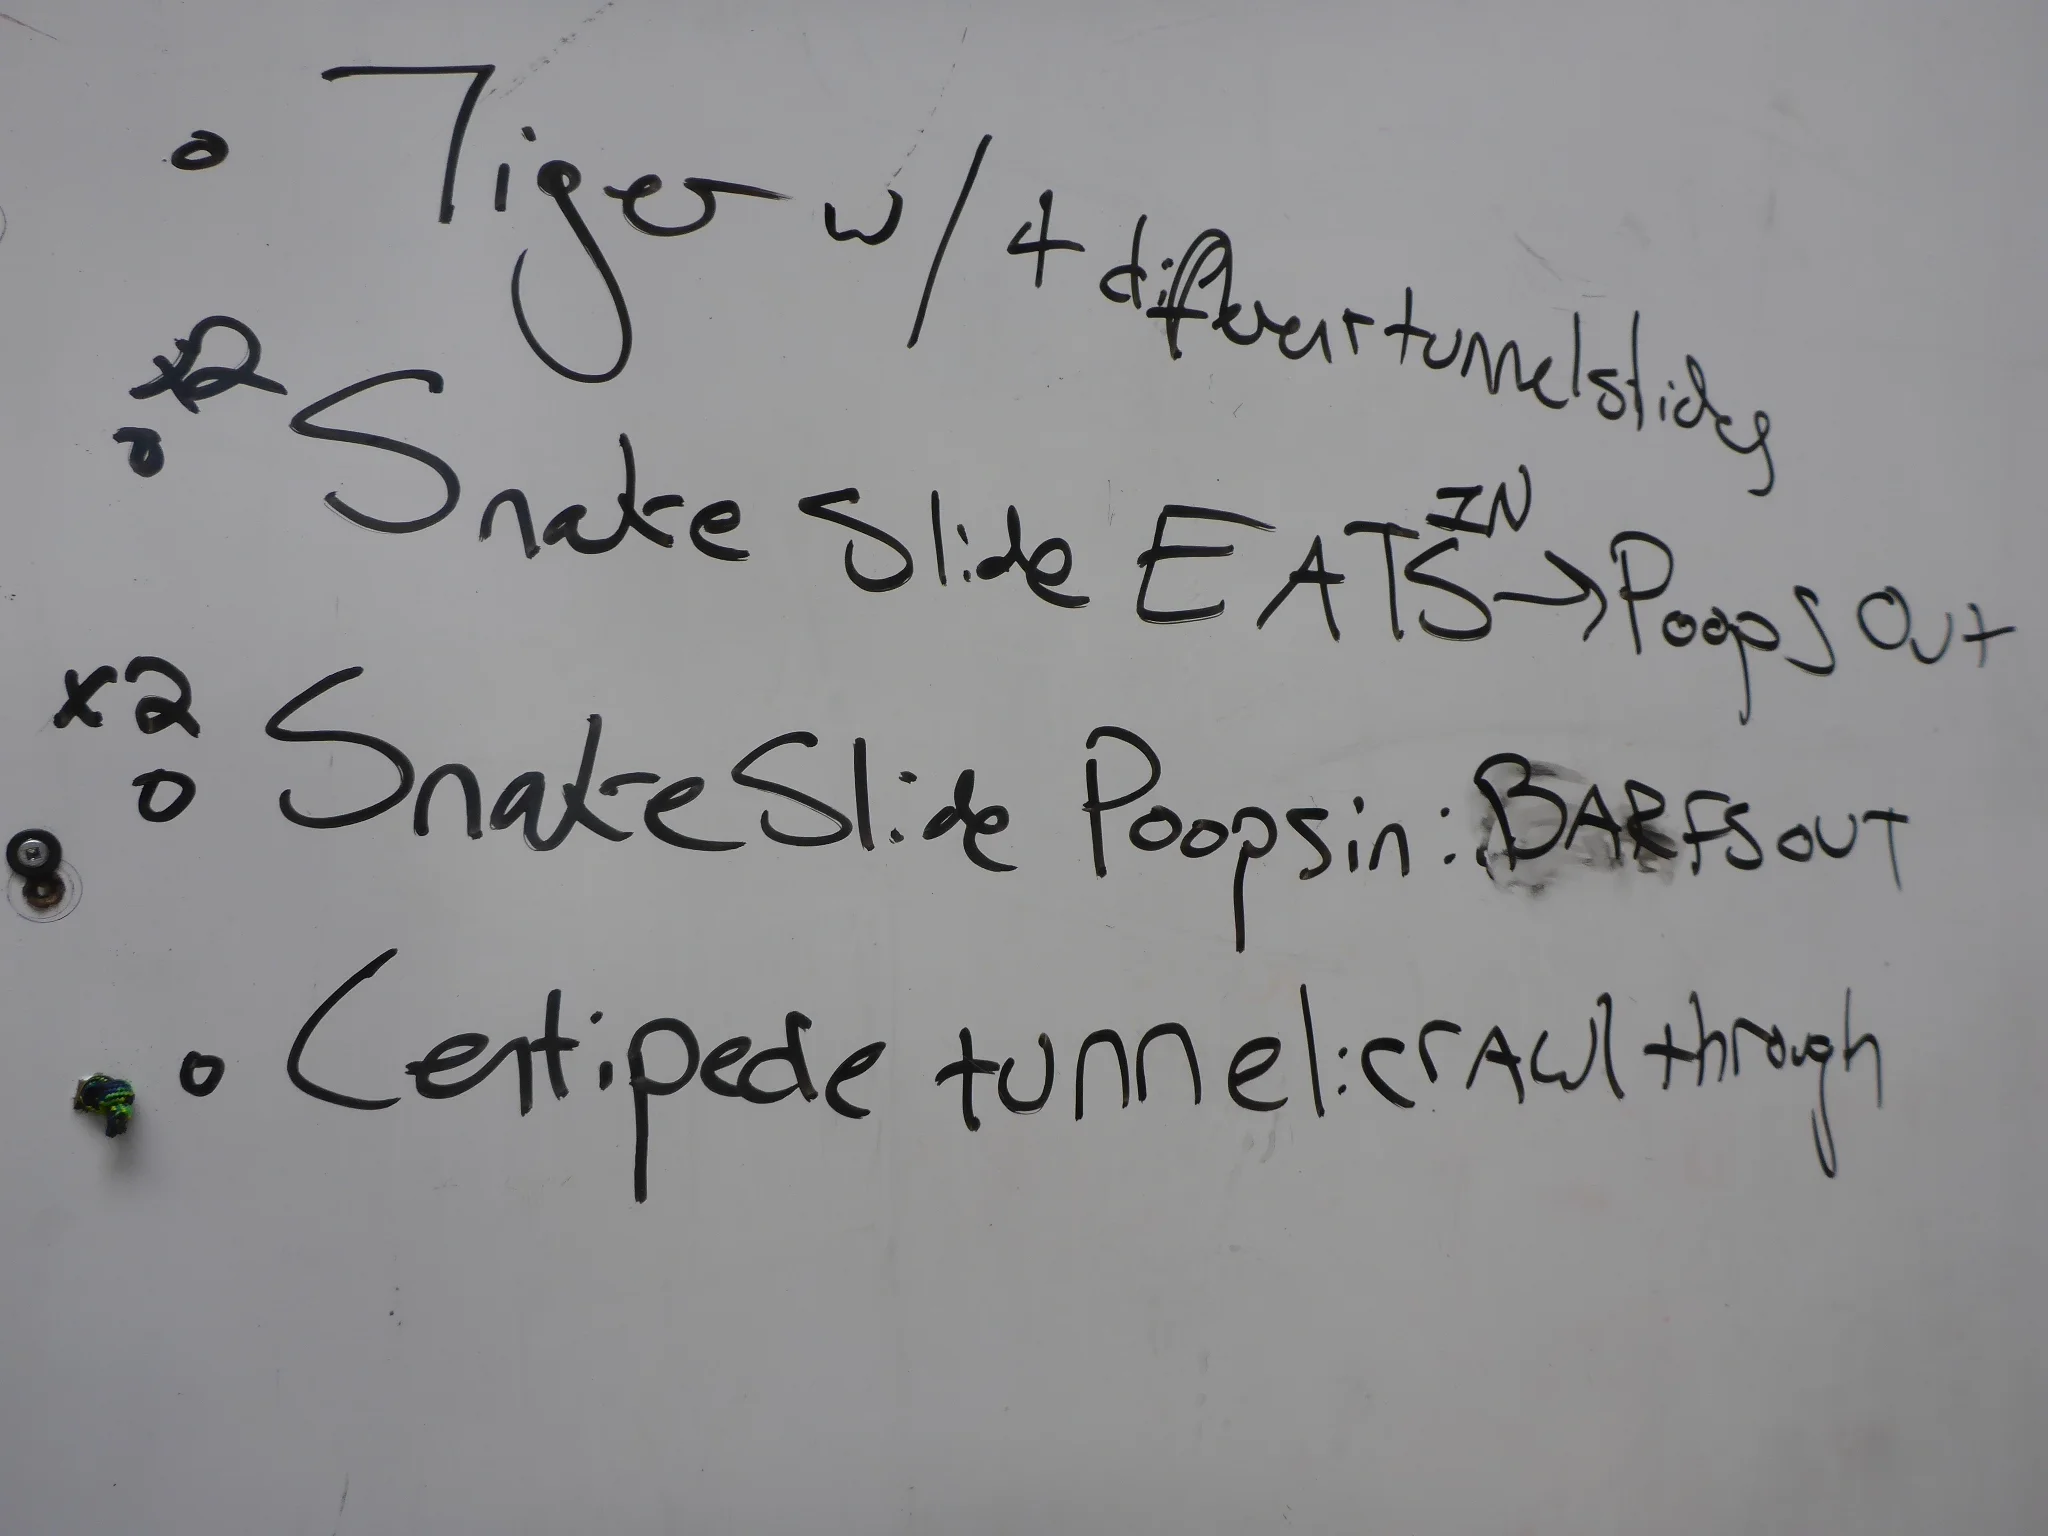 o Tiger w/ 4 different tunnel slides
x2
o Snake Slide EATS IN → Poops Out
x2
o Snake Slide Poops in: BARFS OUT
o Centipede tunnel: crAwl through